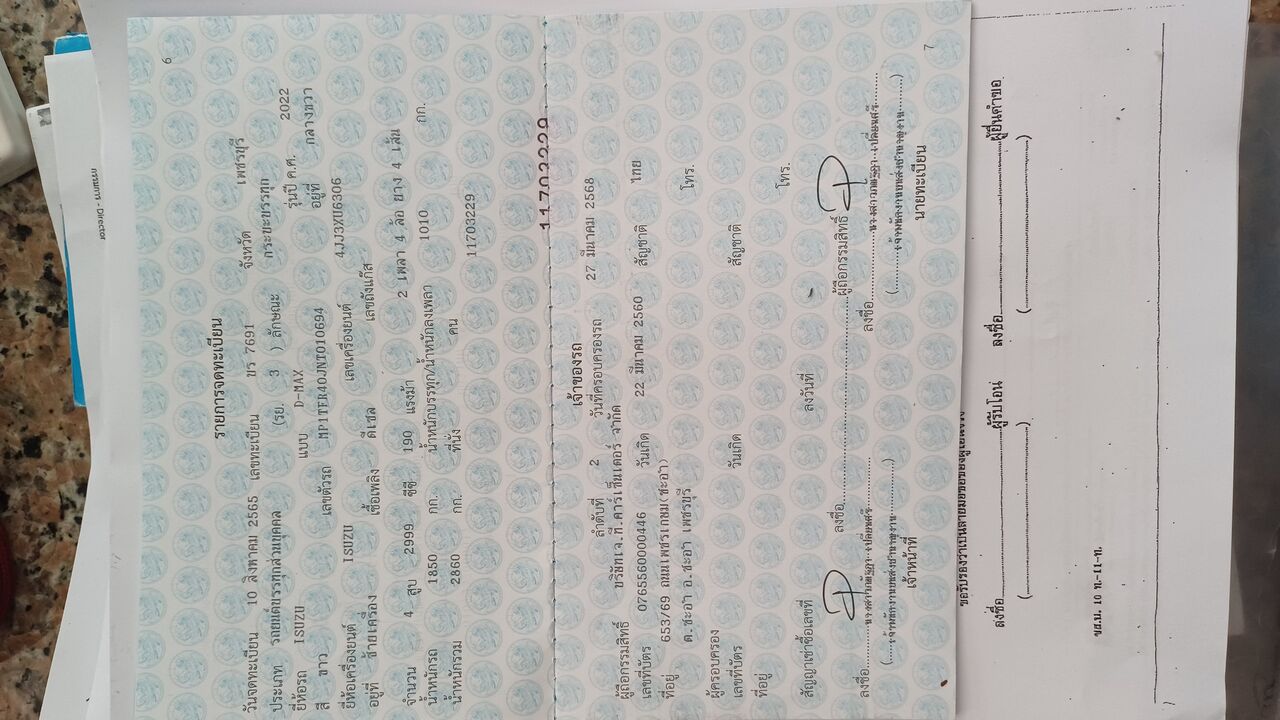 กรรมการ - Director
6
รายการจดทะเบียน
วันจดทะเบียน 10 สิงหาคม 2565 เลขทะเบียน ขร 7691 จังหวัด เพชรบุรี
ประเภท รถยนต์บรรทุกส่วนบุคคล (รย. 3 ) ลักษณะ กระบะบรรทุก
ยี่ห้อรถ ISUZU แบบ D-MAX รุ่นปี ค.ศ. 2022
สี ขาว เลขตัวรถ MP1TFR40JNT010694 อยู่ที่ กลางขวา
ยี่ห้อเครื่องยนต์ ISUZU เลขเครื่องยนต์ 4JJ3XU6306
อยู่ที่ ซ้ายเครื่อง เชื้อเพลิง ดีเซล เลขถังแก๊ส
จำนวน 4 สูบ 2999 ซีซี 190 แรงม้า 2 เพลา 4 ล้อ ยาง 4 เส้น
น้ำหนักรถ 1850 กก. น้ำหนักบรรทุก/น้ำหนักลงเพลา 1010 กก.
น้ำหนักรวม 2860 กก. ที่นั่ง คน 11703229
11703229
เจ้าของรถ
ลำดับที่ 2 วันที่ครอบครองรถ 27 มีนาคม 2568
ผู้ถือกรรมสิทธิ์ บริษัทเจ.ที.คาร์เซ็นเตอร์ จำกัด
เลขที่บัตร 0765560000446 วันเกิด 22 มีนาคม 2560 สัญชาติ ไทย
ที่อยู่ 653/69 ถนนเพชรเกษม(ชะอำ) โทร.
ต.ชะอำ อ.ชะอำ เพชรบุรี
ผู้ครอบครอง
เลขที่บัตร วันเกิด สัญชาติ
ที่อยู่ โทร.
สัญญาเช่าซื้อเลขที่ ลงวันที่
ลงชื่อ ผู้ถือกรรมสิทธิ์
ลงชื่อ ลงชื่อ
เจ้าหน้าที่ นายทะเบียน
7
ลงชื่อ ผู้รับโอน ลงชื่อ ผู้ยื่นคำขอ
( ) ( )
ขส.บ. 10 ท.-11-ท.